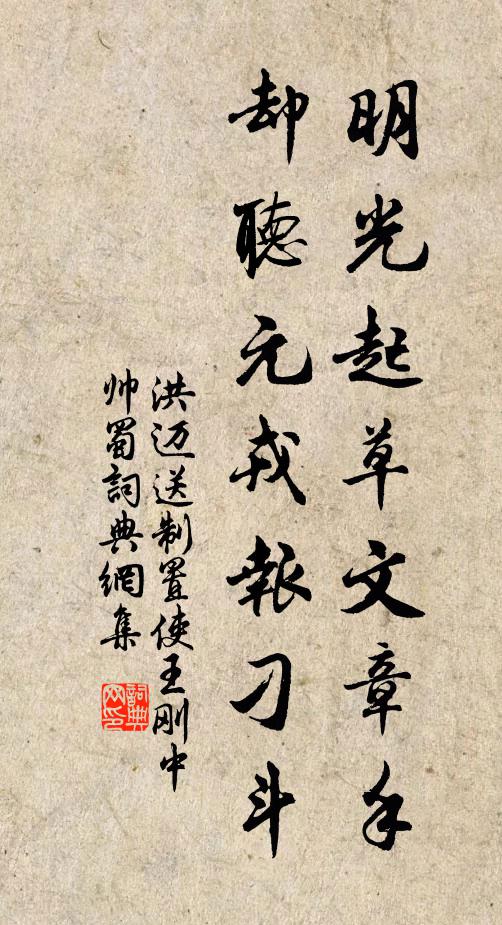 明光起草文章手
却聽元戎報刁斗
洪迈送制置使王刚中
帅蜀詞典網集
詞典
网印